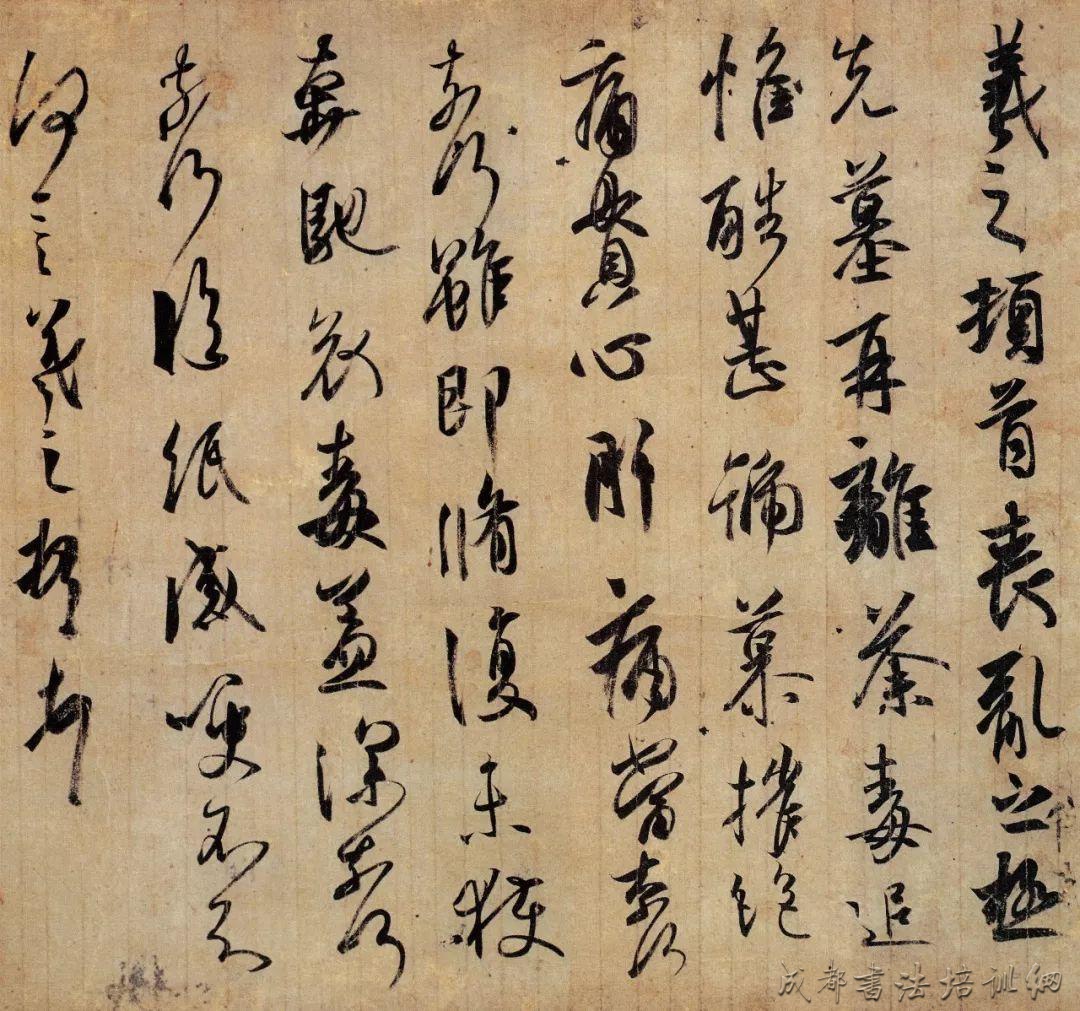 羲之頓首喪亂之極
先墓再離荼毒追
惟酷甚號慕摧絕
痛貫心肝痛當奈何
奈何雖即脩復未獲
奔馳哀毒益深奈何
奈何臨紙感哽不知
何言羲之頓首
成都书法培训网